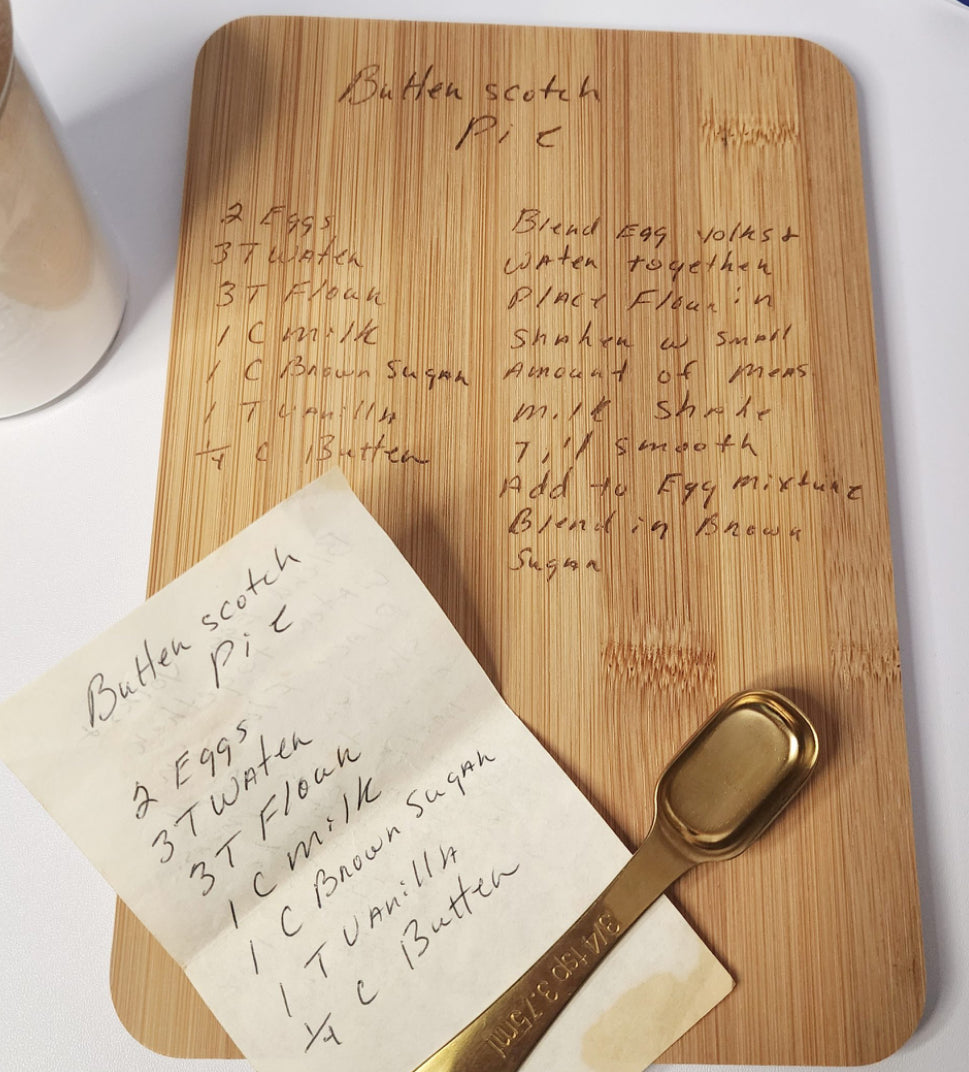 Butter scotch
Pie
2 Eggs
3 T Water
3 T Flour
1 C milk
1 C Brown Sugar
1 T Vanilla
1/4 C Butter
Blend Egg Yolks &
Water together
Place Flour in
Shaker w small
Amount of Meas
milk Shake
Till smooth
Add to Egg mixture
Blend in Brown
Sugar
Butter scotch
Pie
2 Eggs
3 T Water
3 T Flour
1 C milk
1 C Brown Sugar
1 T Vanilla
1/4 C Butter
3/4 tsp 3.75ml